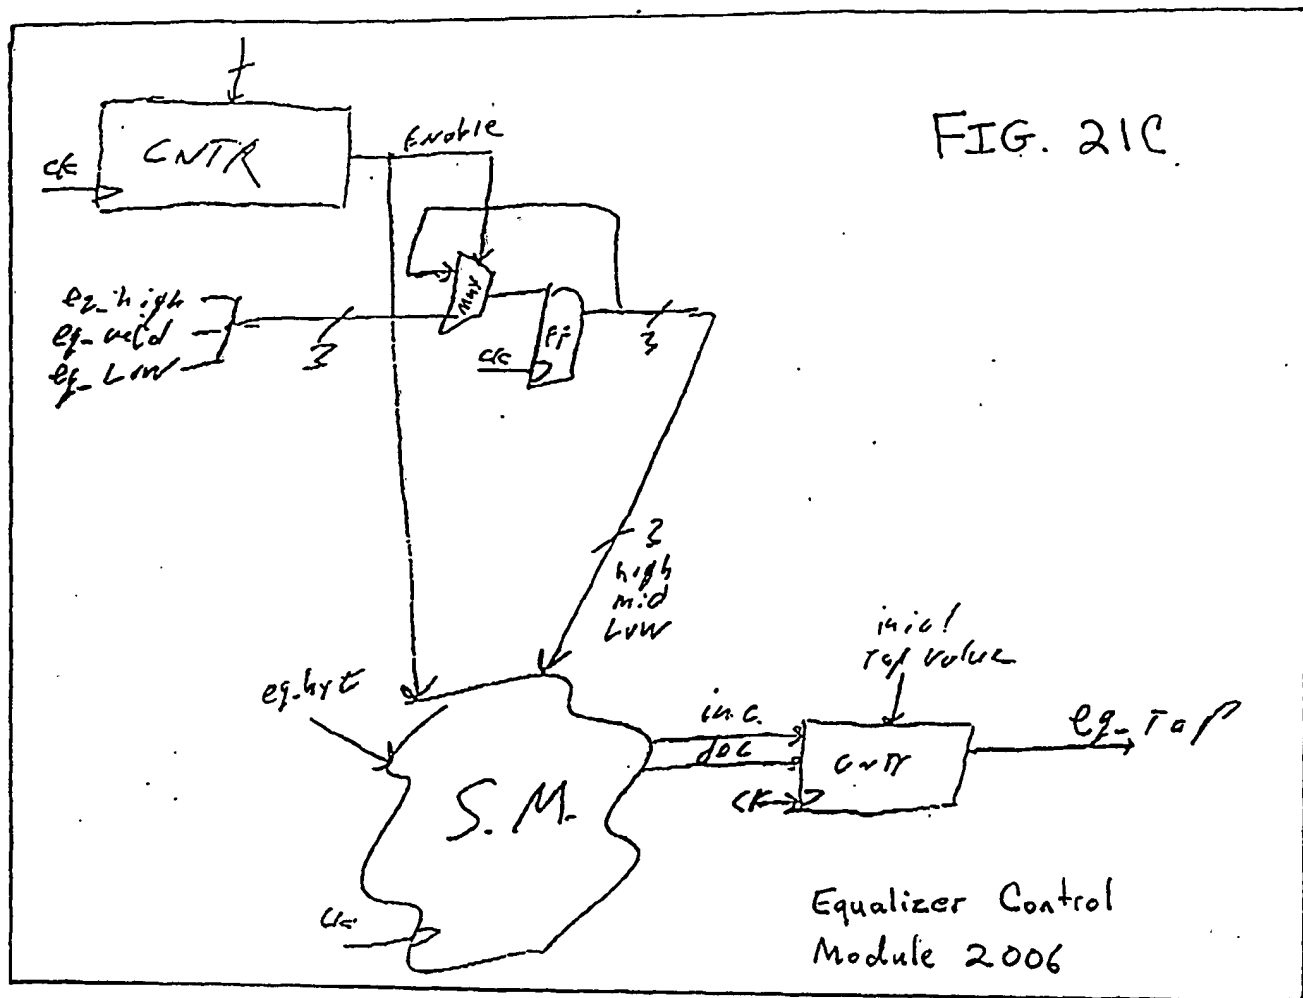 FIG. 21C
CNTR
Enable
clk
eq_high
eq_valid
eq_Low
3
mux
FF
clk
3
3
high
mid
Low
eq_hyt
S.M.
clk
inc.
dec
inical
Tap value
CNTR
clk
eq_Tap
Equalizer Control
Module 2006